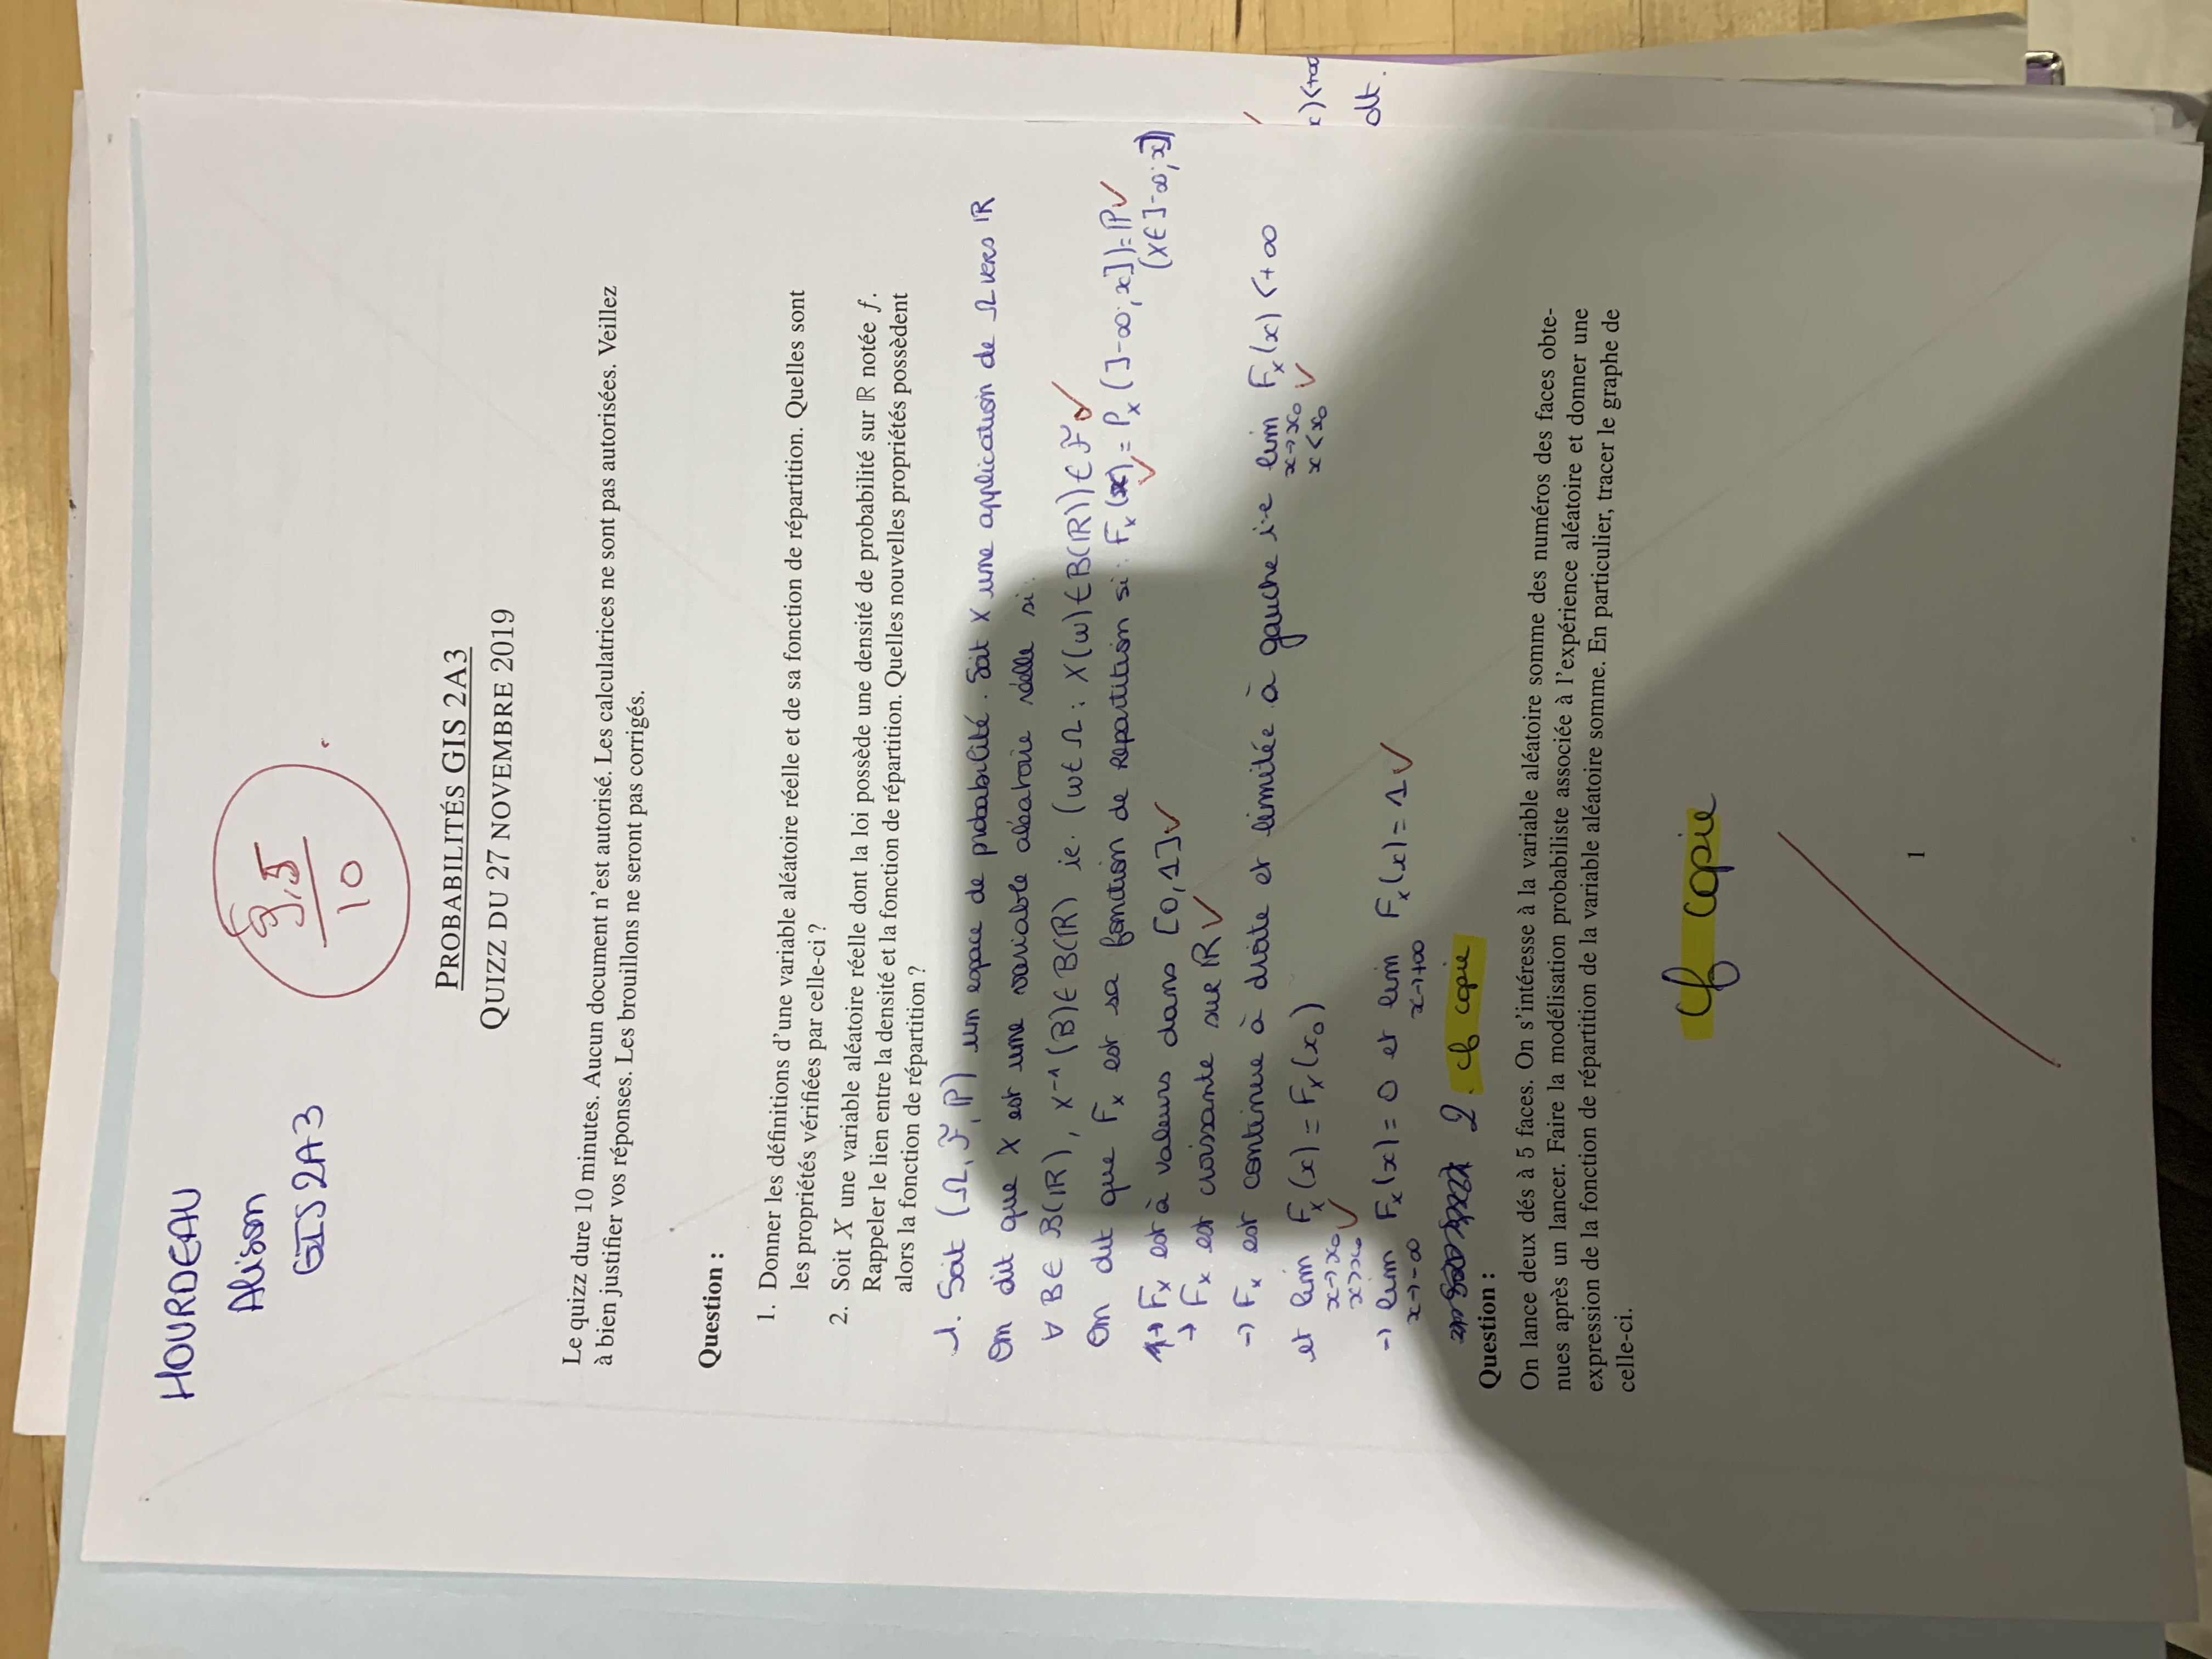 HOURDEAU
Alison
GIS 2A3
9,5
10
PROBABILITÉS GIS 2A3
QUIZZ DU 27 NOVEMBRE 2019
Le quizz dure 10 minutes. Aucun document n'est autorisé. Les calculatrices ne sont pas autorisées. Veillez
à bien justifier vos réponses. Les brouillons ne seront pas corrigés.
Question :
1. Donner les définitions d'une variable aléatoire réelle et de sa fonction de répartition. Quelles sont
les propriétés vérifiées par celle-ci ?
2. Soit X une variable aléatoire réelle dont la loi possède une densité de probabilité sur ℝ notée f.
Rappeler le lien entre la densité et la fonction de répartition. Quelles nouvelles propriétés possèdent
alors la fonction de répartition ?
1. Soit (Ω, F, P) un espace de probabilité. Soit X une application de Ω vers ℝ
On dit que X est une variable aléatoire réelle si :
∀ B ∈ B(ℝ), X⁻¹(B) ∈ B(ℝ) ie. (w ∈ Ω : X(w) ∈ B(ℝ)) ∈ F ✓
On dit que Fx est sa fonction de repartition si : Fx(x) = Px(]-∞; x]) = P ✓
(X ∈ ]-∞; x])
→ Fx est à valeurs dans [0,1] ✓
→ Fx est croissante sur ℝ ✓
→ Fx est continue à droite et limitée à gauche i-e lim Fx(x) < +∞
x→x₀
x<x₀ ✓
et lim Fx(x) = Fx(x₀)
x→x₀
x>x₀ ✓
x)<+∞
dt.
→ lim Fx(x) = 0 et lim Fx(x) = 1 ✓
x→-∞ x→+∞
2. cf copie
Question :
On lance deux dés à 5 faces. On s'intéresse à la variable aléatoire somme des numéros des faces obte-
nues après un lancer. Faire la modélisation probabiliste associée à l'expérience aléatoire et donner une
expression de la fonction de répartition de la variable aléatoire somme. En particulier, tracer le graphe de
celle-ci.
cf copie
1